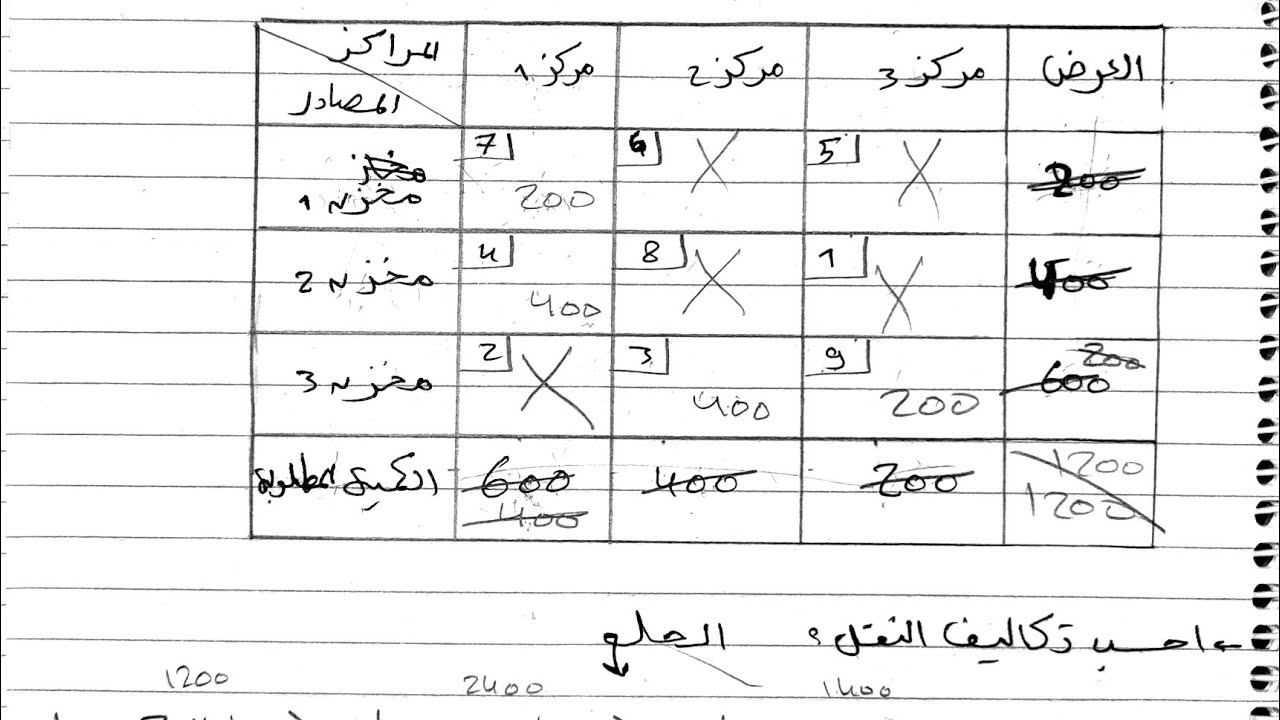 المراكز مركز 1 مركز 2 مركز 3 العرض
المصادر
مخز
مخزن 1 7 200 6 X 5 X 200
مخزن 2 4 400 8 X 1 X 400
مخزن 3 2 X 3 400 9 200 600 200
الكمية المطلوبة 600 400 400 200 1200 1200
← احسب تكاليف النقل؟ الحل
1200 2400 1400